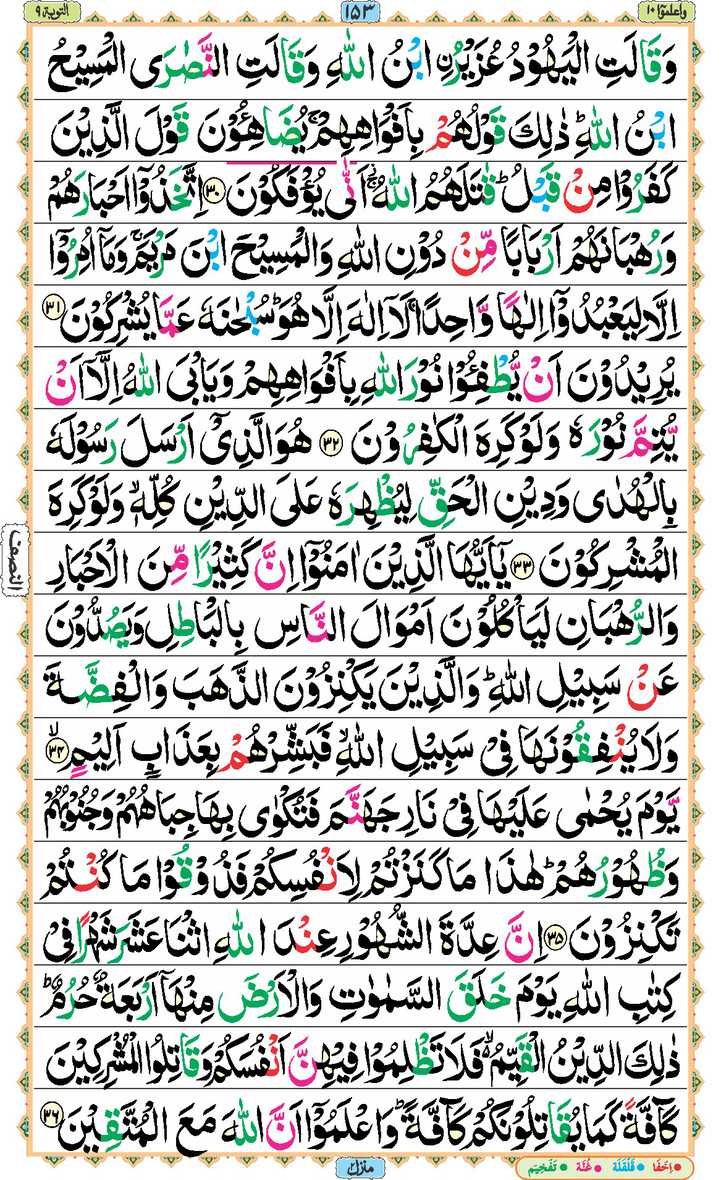 واعلموا ١٠
١٥٣
التوبة ٩
وَقَالَتِ الۡيَهُوۡدُ عُزَيۡرُ ۨابۡنُ اللّٰهِ وَقَالَتِ النَّصٰرَى الۡمَسِيۡحُ
ابۡنُ اللّٰهِ‌ؕ ذٰ لِكَ قَوۡلُهُمۡ بِاَ فۡوَاهِهِمۡ‌ۚ يُضَاهِئُوۡنَ قَوۡلَ الَّذِيۡنَ
كَفَرُوۡا مِنۡ قَبۡلُ‌ ؕ قَاتَلَهُمُ اللّٰهُ ‌ۚ اَنّٰى يُؤۡفَكُوۡنَ ‏﴿۳۰﴾ اِتَّخَذُوۡۤا اَحۡبَارَهُمۡ
وَرُهۡبَانَهُمۡ اَرۡبَابًا مِّنۡ دُوۡنِ اللّٰهِ وَالۡمَسِيۡحَ ابۡنَ مَرۡيَمَ‌ ۚ وَمَاۤ اُمِرُوۡۤا
اِلَّا لِيَعۡبُدُوۡۤا اِلٰهًا وَّاحِدًا‌ ۚ لَاۤ اِلٰهَ اِلَّا هُوَ‌ ؕ سُبۡحٰنَهٗ عَمَّا يُشۡرِكُوۡنَ ‏﴿۳۱﴾
يُرِيۡدُوۡنَ اَنۡ يُّطۡفِـُٔـوۡا نُوۡرَ اللّٰهِ بِاَ فۡوَاهِهِمۡ وَيَاۡبَى اللّٰهُ اِلَّاۤ اَنۡ
يُّتِمَّ نُوۡرَهٗ وَلَوۡ كَرِهَ الۡـكٰفِرُوۡنَ ‏﴿۳۲﴾ هُوَ الَّذِىۡۤ اَرۡسَلَ رَسُوۡلَهٗ
بِالۡهُدٰى وَدِيۡنِ الۡحَـقِّ لِيُظۡهِرَهٗ عَلَى الدِّيۡنِ كُلِّهٖۙ وَلَوۡ كَرِهَ
الۡمُشۡرِكُوۡنَ ‏﴿۳۳﴾ يٰۤاَيُّهَا الَّذِيۡنَ اٰمَنُوۡۤا اِنَّ كَثِيۡرًا مِّنَ الۡاَحۡبَارِ
النصف
وَالرُّهۡبَانِ لَيَاۡكُلُوۡنَ اَمۡوَالَ النَّاسِ بِالۡبَاطِلِ وَيَصُدُّوۡنَ
عَنۡ سَبِيۡلِ اللّٰهِ‌ؕ وَالَّذِيۡنَ يَكۡنِزُوۡنَ الذَّهَبَ وَالۡفِضَّةَ
وَلَا يُنۡفِقُوۡنَهَا فِىۡ سَبِيۡلِ اللّٰهِۙ فَبَشِّرۡهُمۡ بِعَذَابٍ اَلِيۡمٍۙ‏﴿۳۴﴾
يَّومَ يُحۡمٰى عَلَيۡهَا فِىۡ نَارِ جَهَنَّمَ فَتُكۡوٰى بِهَا جِبَاهُهُمۡ وَجُنُوۡبُهُمۡ
وَظُهُوۡرُهُمۡ‌ؕ هٰذَا مَا كَنَزۡتُمۡ لِاَنۡفُسِكُمۡ فَذُوۡقُوۡا مَا كُنۡتُمۡ
تَكۡنِزُوۡنَ ‏﴿۳۵﴾ اِنَّ عِدَّةَ الشُّهُوۡرِ عِنۡدَ اللّٰهِ اثۡنَا عَشَرَ شَهۡرًا فِىۡ
كِتٰبِ اللّٰهِ يَوۡمَ خَلَقَ السَّمٰوٰتِ وَالۡاَرۡضَ مِنۡهَاۤ اَرۡبَعَةٌ حُرُمٌ‌ ؕ
ذٰ لِكَ الدِّيۡنُ الۡقَيِّمُ ۙ فَلَا تَظۡلِمُوۡا فِيۡهِنَّ اَنۡفُسَكُمۡ‌ وَقَاتِلُوا الۡمُشۡرِكِيۡنَ
كَآفَّةً كَمَا يُقَاتِلُوۡنَكُمۡ كَآفَّةً‌  ؕ وَاعۡلَمُوۡۤا اَنَّ اللّٰهَ مَعَ الۡمُتَّقِيۡنَ ‏﴿۳۶﴾
منزل ۲
• اِخفَا • قَلْقَلَة • غُنَّة • تَفْخِيْم